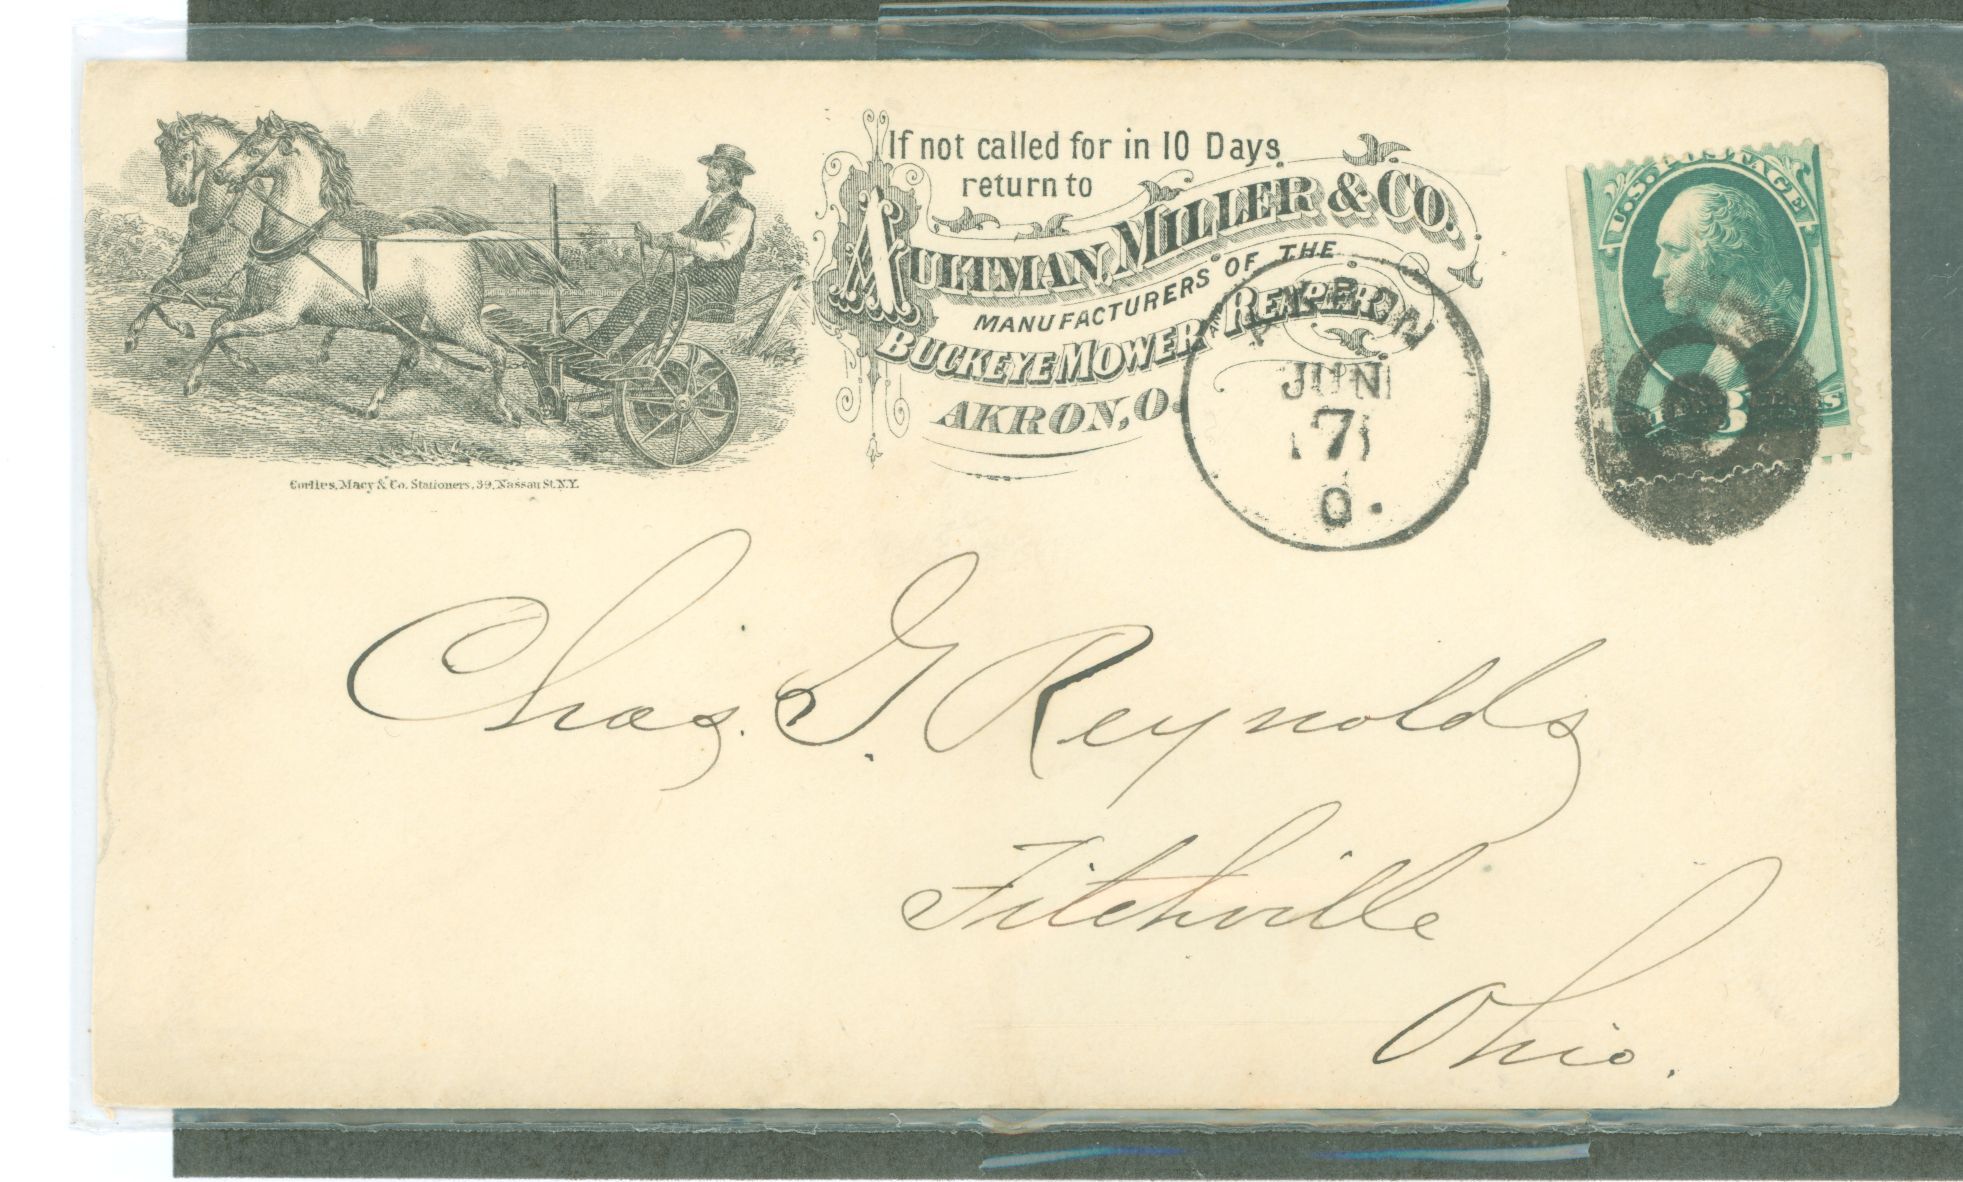 If not called for in 10 Days
return to
AULTMAN, MILLER & CO.
MANUFACTURERS OF THE
BUCKEYE MOWER AND REAPER
AKRON, O.
Corlies, Macy & Co. Stationers, 39, Nassau St. N.Y.
JUN
7
O.
U.S. POSTAGE
3
Chas. G. Reynolds
Fitchville
Ohio.